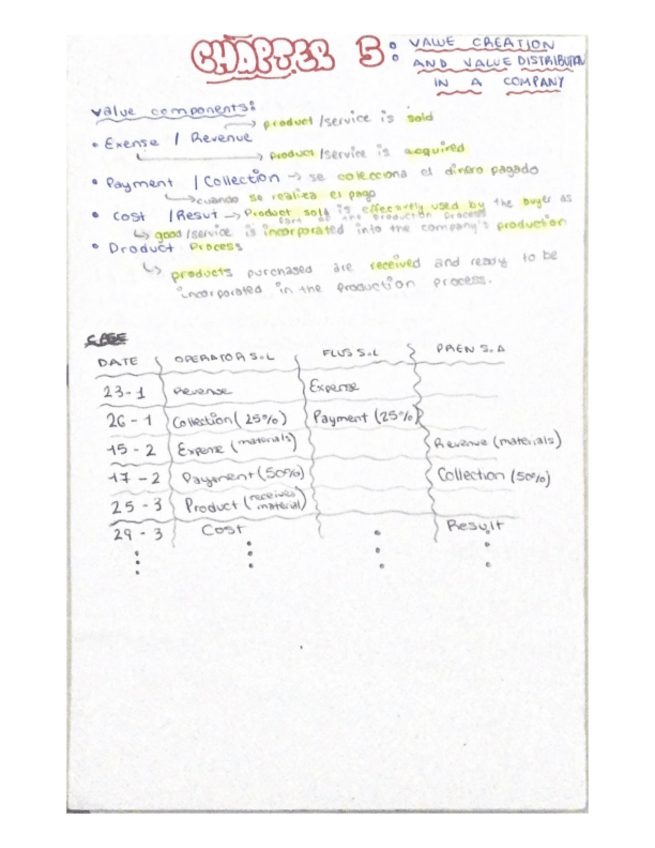 CHAPTER 5: VALUE CREATION
AND VALUE DISTRIBUTION
IN A COMPANY
Value components:
→ product/service is sold
• Exense / Revenue
→ product/service is acquired
• Payment / Collection → se colecciona el dinero pagado
→ cuando se realiza el pago
• Cost / Resut → Product sold is effectively used by the buyer as
part of the production process
↳ good/service is incorporated into the company's production
• Product Process
↳ products purchased are received and ready to be
incorporated in the production process.
CASE
DATE OPERATOR S.L FLUS S.L PREN S.A
23-1 Revenue Expense
26-1 Collection (25%) Payment (25%)
15-2 Expense (materials) Revenue (materials)
17-2 Payment (50%) Collection (50%)
25-3 Product (received material)
29-3 Cost Result